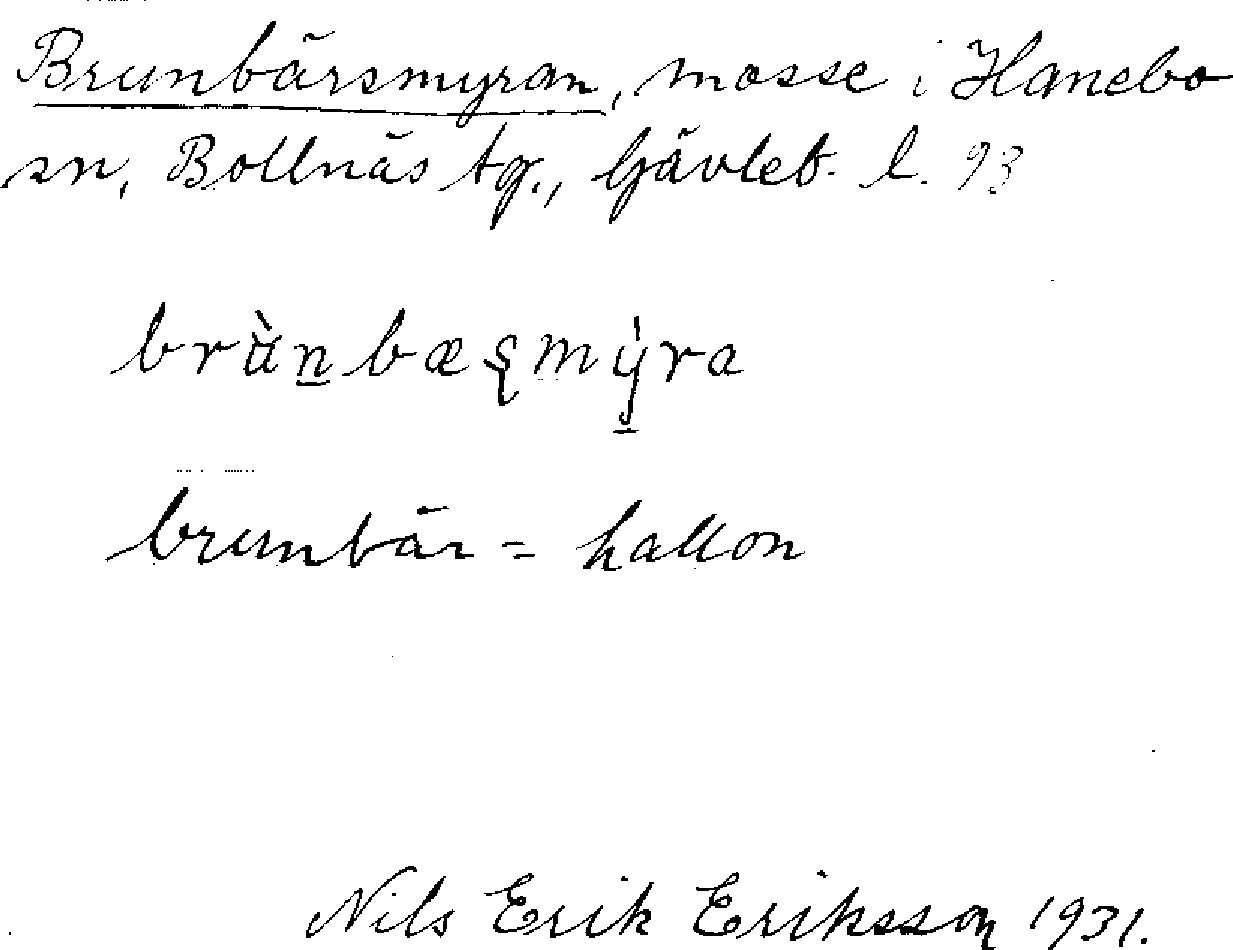 Brunbärsmyran, mosse i Hanebo
sn, Bollnäs tg., Gävleb. l. 93
brùn̲bæʂmỳ̲ra
brunbär = hallon
Nils Erik Eriksson 1931.